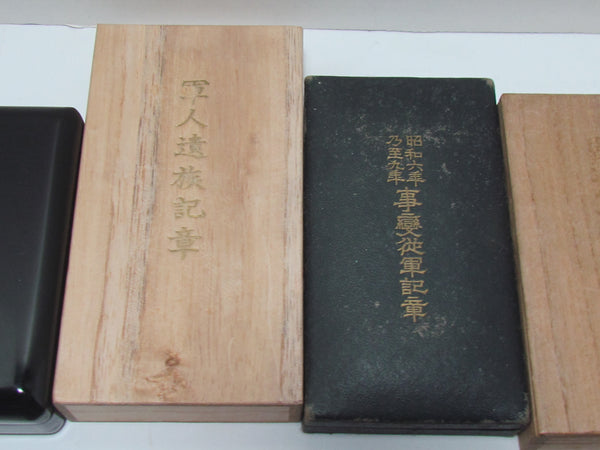 軍人遺族記章
昭和六年
乃至九年
事變從軍記章